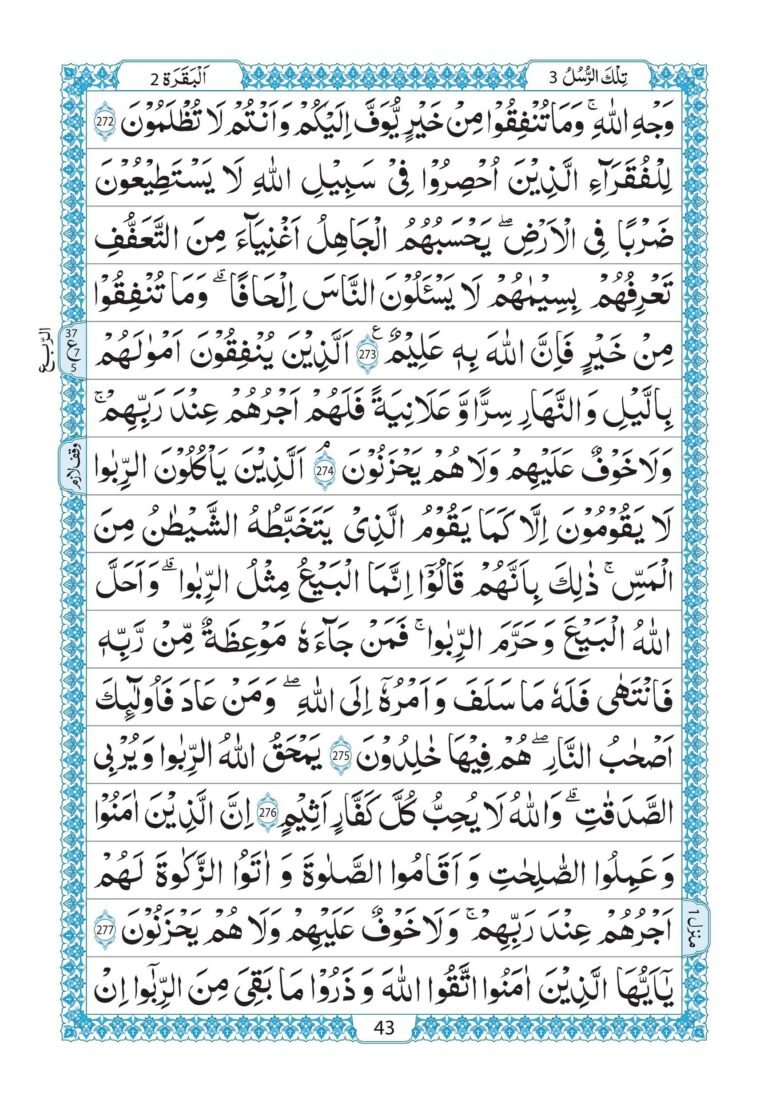 تِلْكَ الرُّسُلُ 3
اَلْبَقَرَة 2
وَجْهِ اللّٰهِ ؕ وَمَا تُنْفِقُوْا مِنْ خَيْرٍ يُّوَفَّ اِلَيْكُمْ وَاَنْتُمْ لَا تُظْلَمُوْنَ 272
لِلْفُقَرَآءِ الَّذِيْنَ اُحْصِرُوْا فِيْ سَبِيْلِ اللّٰهِ لَا يَسْتَطِيْعُوْنَ
ضَرْبًا فِى الْاَرْضِ ۖ يَحْسَبُهُمُ الْجَاهِلُ اَغْنِيَآءَ مِنَ التَّعَفُّفِ
تَعْرِفُهُمْ بِسِيْمٰهُمْ لَا يَسْـَٔلُوْنَ النَّاسَ اِلْحَافًا ۗ وَمَا تُنْفِقُوْا
مِنْ خَيْرٍ فَاِنَّ اللّٰهَ بِهٖ عَلِيْمٌ ع 273 اَلَّذِيْنَ يُنْفِقُوْنَ اَمْوٰلَهُمْ
37 ع 5
الرّبع
بِالَّيْلِ وَالنَّهَارِ سِرًّا وَّ عَلَانِيَةً فَلَهُمْ اَجْرُهُمْ عِنْدَ رَبِّهِمْ ۚ
وَلَا خَوْفٌ عَلَيْهِمْ وَلَا هُمْ يَحْزَنُوْنَ ۘ 274 اَلَّذِيْنَ يَاْكُلُوْنَ الرِّبٰوا
وقف لازم
لَا يَقُوْمُوْنَ اِلَّا كَمَا يَقُوْمُ الَّذِيْ يَتَخَبَّطُهُ الشَّيْطٰنُ مِنَ
الْمَسِّ ۚ ذٰلِكَ بِاَنَّهُمْ قَالُوْٓا اِنَّمَا الْبَيْعُ مِثْلُ الرِّبٰوا ۗ وَاَحَلَّ
اللّٰهُ الْبَيْعَ وَحَرَّمَ الرِّبٰوا ۚ فَمَنْ جَآءَهٗ مَوْعِظَةٌ مِّنْ رَّبِّهٖ
فَانْتَهٰى فَلَهٗ مَا سَلَفَ وَاَمْرُهٗٓ اِلَى اللّٰهِ ۖ وَمَنْ عَادَ فَاُولٰٓئِكَ
اَصْحٰبُ النَّارِ ۖ هُمْ فِيْهَا خٰلِدُوْنَ 275 يَمْحَقُ اللّٰهُ الرِّبٰوا وَيُرْبِى
الصَّدَقٰتِ ۗ وَاللّٰهُ لَا يُحِبُّ كُلَّ كَفَّارٍ اَثِيْمٍ 276 اِنَّ الَّذِيْنَ اٰمَنُوْا
وَ عَمِلُوا الصّٰلِحٰتِ وَ اَقَامُوا الصَّلٰوةَ وَ اٰتَوُا الزَّكٰوةَ لَهُمْ
اَجْرُهُمْ عِنْدَ رَبِّهِمْ ۚ وَلَا خَوْفٌ عَلَيْهِمْ وَلَا هُمْ يَحْزَنُوْنَ 277
منزل 1
يٰٓاَيُّهَا الَّذِيْنَ اٰمَنُوا اتَّقُوا اللّٰهَ وَ ذَرُوْا مَا بَقِيَ مِنَ الرِّبٰٓوا اِنْ
43